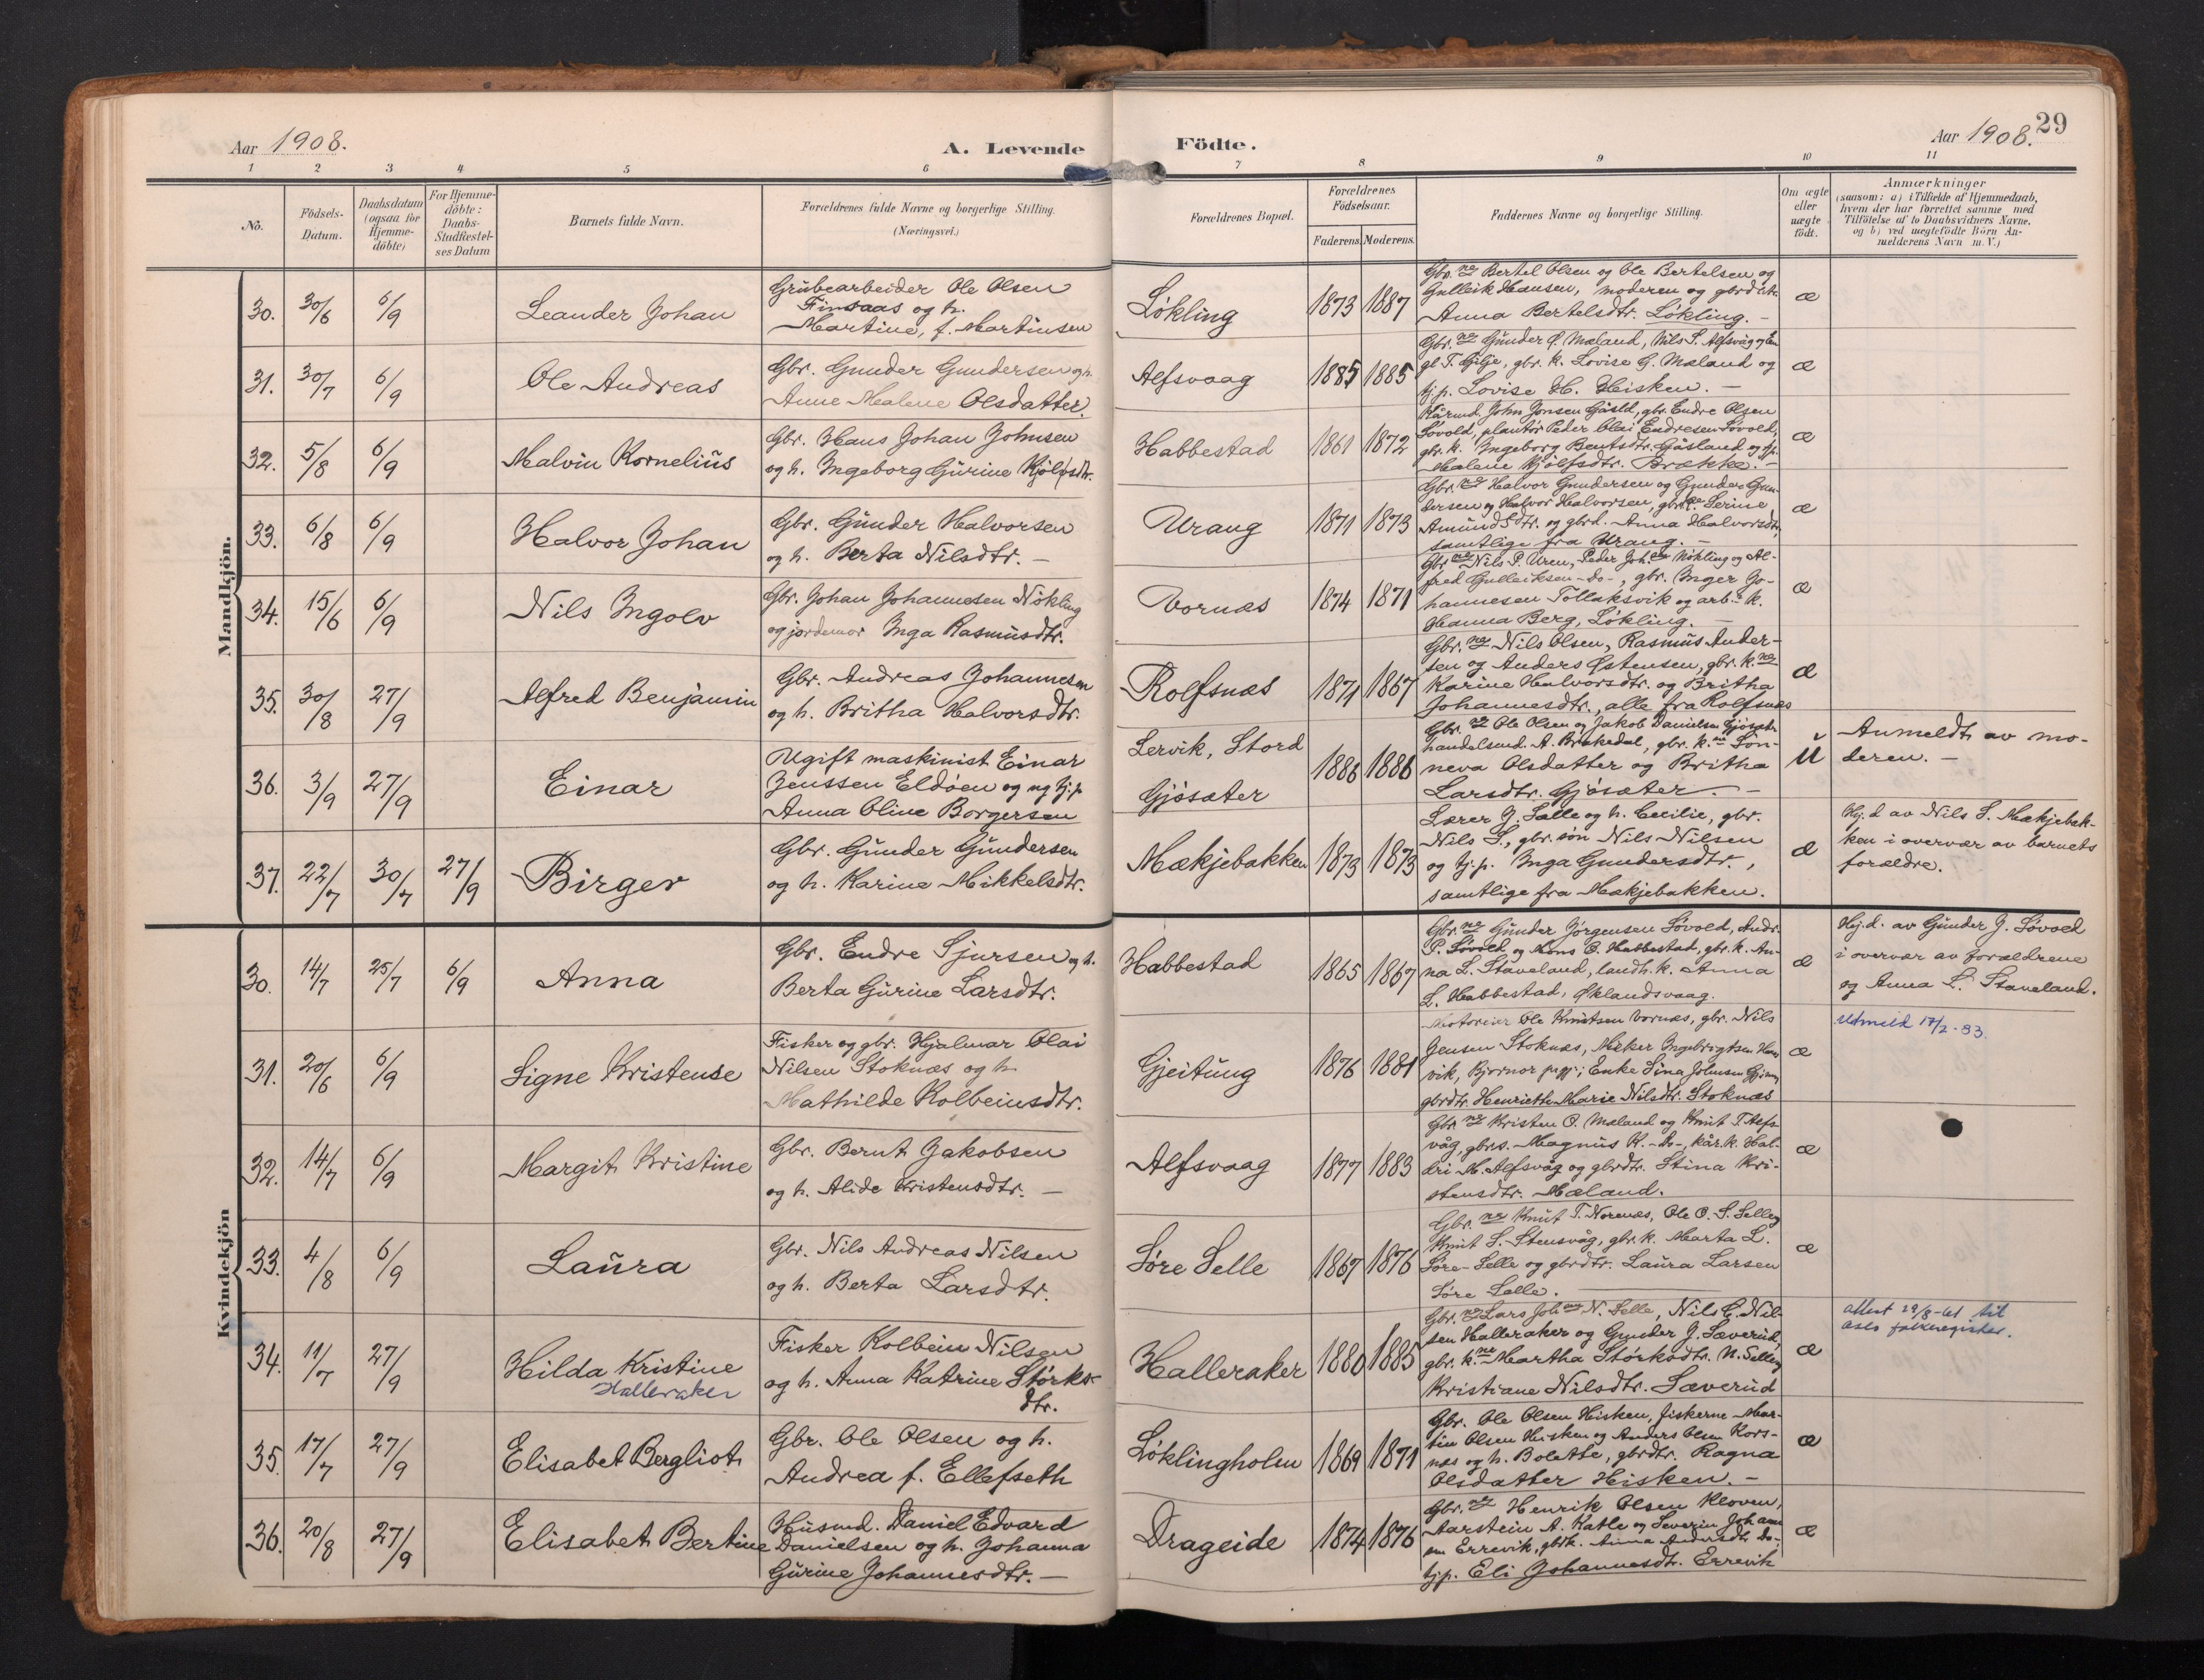 29
Aar 1908.
A. Levende
Födte.
Aar 1908.
1
2
3
4
5
6
7
8
9
10
11
No.
Födsels-
Datum.
Daabsdatum
(ogsaa for
Hjemme-
döbte)
For Hjemme-
döbte:
Daabs-
Stadfæstel-
ses Datum
Barnets fulde Navn.
Forældrenes fulde Navne og borgerlige Stilling.
(Næringsvei.)
Forældrenes Bopæl.
Forældrenes
Födselsaar.
Faderens.
Moderens.
Faddernes Navne og borgerlige Stilling.
Om ægte
eller
uægte
födt.
Anmærkninger
(saasom: a) i Tilfælde af Hjemmedaab,
hvem der har forrettet samme med
Tilföielse af to Daabsvidners Navne.
og b) ved uægtefödte Börn An-
melderens Navn m. V.)
Mandkjön.
30.
30/6
6/9
Leander Johan
Grubearbeider Ole Olsen
Finsaas og h.
Martine, f. Martinsen
Løkling
1873
1887
Gbr.ne Bertel Olsen og Ole Bertelsen og
Gulleik Hansen, moderen og gbrd.
Anna Bertelsdtr. Løkling. –
æ
31.
30/7
6/9
Ole Andreas
Gbr. Gunder Gundersen og h.
Anne Malene Olsdatter.
Alfsvaag
1885
1885
Gbr.ne Gunder O. Mæland, Nils S. Alfsvåg og En
gl T. Gilje, gbr. k. Lovise G. Mæland og
tj.p. Lovise H. Hisken. –
æ
32.
5/8
6/9
Malvin Kornelius
Gbr. Hans Johan Johnsen
og h. Ingeborg Gurine Kjølvsdtr.
Habbestad
1861
1872
Kårmd. John Jonsen Gåsld, gbr. Endre Olsen
Løvold, Peder Olai Endresen Løvold,
gbr. k. Ingeborg Bentsdtr. Gåsland og tj.p.
Malene Kjølfsdtr. Brække. –
æ
33.
6/8
6/9
Halvor Johan
Gbr. Gunder Halvorsen
og h. Berta Nilsdtr. –
Urang
1871
1873
Gbr.ne Halvor Gundersen og Gunder Gun-
dersen og Halvor Halvorsen, gbr.k. Serine
Amundsdtr. og gbrd. Anna Halvorsdtr,
samtlige fra Urang. –
æ
34.
15/6
6/9
Nils Ingolv
Gbr. Johan Johannesen Nökling
og jordemor Inga Rasmusdtr.
Vornæs
1874
1871
Gbr.ne Nils P. Uren, Peder Joh.sen Nökling og Al-
fred Gulleiksen –do–, gbr. Inger Jo-
hannesen Tollaksvik og arb. k.
Hanna Berg, Løkling. –
æ
35.
30/8
27/9
Alfred Benjamin
Gbr. Andreas Johannesen
og h. Britha Halvorsdtr.
Rolfsnæs
1871
1867
Gbr.ne Nils Olsen, Rasmus Ander-
sen og Anders Østensen, gbr. k.ne
Karine Halvorsdtr. og Britha
Johannesdtr., alle fra Rolfsnæs
æ
36.
3/9
27/9
Einar
Ugift maskinist Einar
Jenssen Eldøen og ug tj.p
Anna Oline Borgersen
Lervik, Stord
Gjøsæter
1886
1886
Gbr.ne Ole Olsen og Jakob Danielsen Gjøsæter
handelsmd. A. Brækedal, gbr. k.ne Søn-
neva Olsdatter og Britha
Larsdtr. Gjøsæter. –
U
Anmeldt av mo-
deren. –
37.
22/7
30/7
27/9
Birger
Gbr. Gunder Gundersen
og h. Karine Mikkelsdtr.
Mækjebakken
1873
1873
Lærer J. Sælle og h. Cecilie, gbr.
Nils S., gbr. søn Nils Nilsen
og tj.p. Inga Gundersdtr.,
samtlige fra Mækjebakken.
æ
Hj.d av Nils S. Mækjebak-
ken i overvær av barnets
forældre.
Kvindekjön
30.
14/7
25/7
6/9
Anna
Gbr. Endre Sjursen og h.
Berta Gurine Larsdtr.
Habbestad
1865
1867
Gbr.ne Gunder Jørgensen Løvold, Andr.
P. Løvold og Mons O. Habbestad, gbr. k. An-
na L. Staveland, landh. k. Anna
L. Habbestad, Øklandsvaag.
æ
Hj.d. av Gunder J. Løvold
i overvær av forældrene
og Anna L. Staveland.
31.
20/6
6/9
Signe Kristense
Fisker og gbr. Hjalmar Olai
Nilsen Stoknæs og h.
Mathilde Kolbeinsdtr.
Gjeitung
1876
1881
Motoreier Ole Knutsen Vornæs, gbr. Nils
Jensen Stoknæs, Ingebrigtsen
vik, Bjornor ; Enke Sina Johnsen
gbrdtr. Henriette Marie Nilsdtr. Stoknæs
æ
Utmeld 17/2-83.
32.
14/7
6/9
Margit Kristine
Gbr. Bernt Jakobsen
og h. Alide Kristensdtr. –
Alfsvaag
1877
1883
Gbr.ne Kristen O. Mæland og Knut T. Alfs-
våg, gbrs. Magnus K. –do–, kår. k. Hal-
dri M. Alfsvåg og gbrdtr. Stina Kri-
stensdtr. Mæland.
æ
33.
4/8
6/9
Laura
Gbr. Nils Andreas Nilsen
og h. Berta Larsdtr.
Søre Selle
1867
1876
Gbr.ne Knut T. Norenæs, Ole O. S. Selle og
Knut S. Stensvåg, gbr. k. Marta L.
Søre-Selle og gbrdtr. Laura Larsen
Søre Selle.
æ
34.
11/7
27/9
Hilda Kristine
Halleraker
Fisker Kolbein Nilsen
og h. Anna Katrine Størks-
dtr.
Halleraker
1880
1885
Gbr.ne Lars Joh. N. Selle, Nils C. Nil-
sen Halleraker og Gunder J. Sæverud,
gbr. k.ne Martha Størksdtr. N. Selle og
Kristiane Nilsdtr. Sæverud
æ
attest 29/8-61 til
Oslo folkeregister.
35.
17/7
27/9
Elisabet Bergliot
Gbr. Ole Olsen og h.
Andrea f. Ellefseth
Løklingholm
1869
1871
Gbr. Ole Olsen Hisken, fiskerne Mar-
tin Olsen Hisken og Anders Olsen Kors-
næs og h. Bolette, gbrdtr. Ragna
Olsdatter Hisken. –
æ
36.
20/8
27/9
Elisabet Bertine
Husmd. Daniel Edvard
Danielsen og h. Johanna
Gurine Johannesdtr. –
Drageide
1874
1876
Gbr.ne Henrik Olsen Kloven,
Aarstein A. Katle og Severin Johann
sen Errevik, gbrk. Anna Andersdtr do.
tj.p. Eli Johannesdtr. Errevik
æ